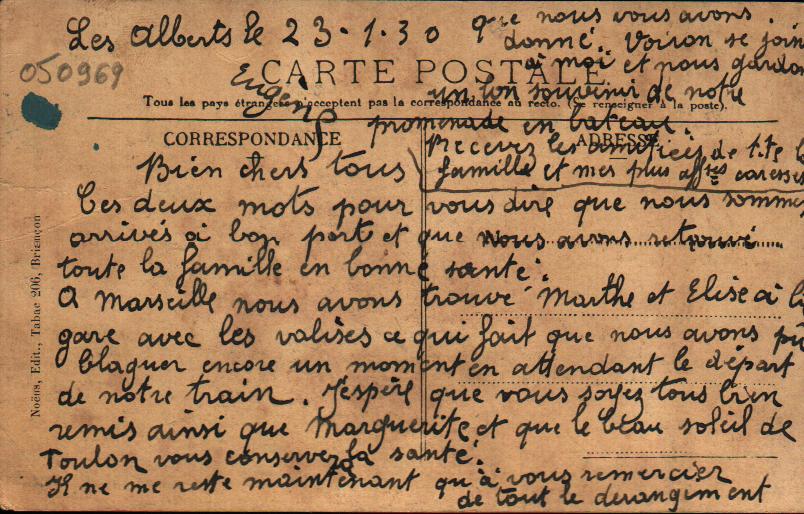 Les Alberts le 23.1.30
que nous vous avons
donné. Voiron se join
à moi et nous gardon
050969
CARTE POSTALE
un bon souvenir de notre
Eugenie
Tous les pays étrangers n'acceptent pas la correspondance au recto. (Se renseigner à la poste).
promenade en bateau.
CORRESPONDANCE
ADRESSE
Recevez les amitiés de t.te l
famille et mes plus afftes caresses
Bien chers tous
Ces deux mots pour vous dire que nous somme
arrivés à bon port et que nous avons retrouvé
toute la famille en bonne santé.
A Marseille nous avons trouvé Marthe et Elise à la
gare avec les valises ce qui fait que nous avons pu
blaguer encore un moment en attendant le départ
de notre train. J'espère que vous soyez tous bien
remis ainsi que Marguerite et que le beau soleil de
Toulon vous conservera la santé.
Il ne me reste maintenant qu'à vous remercier
de tout le derangement
Noëus, Edit., Tabac 206, Briançon